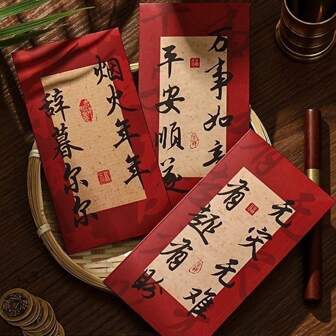 烟火年年
辞暮尔尔
万事如意
平安順遂
无灾无难
有趣有盼